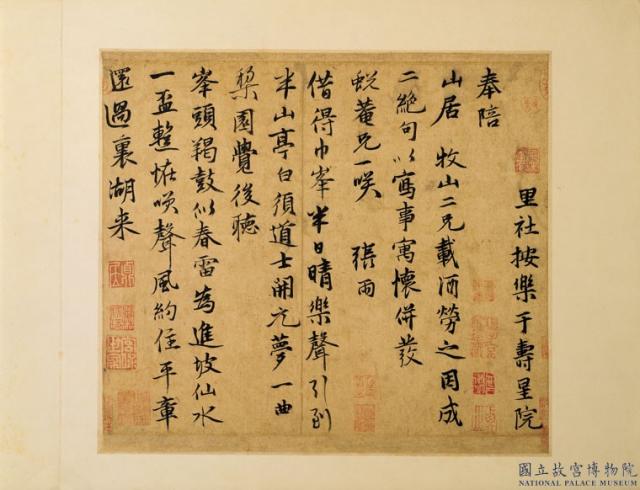 里社按樂于壽星院
奉陪
山居 牧山二兄載酒勞之因成
二絕句以寫事寓懷併發
蛻菴兄一咲 張雨
借得巾峯半日晴樂聲引到
半山亭白須道士開元夢一曲
棃園覺後聽
峯頭羯鼓似春雷為進坡仙水
一盃整恠咲聲風約住平章
還過裏湖来
國立故宮博物院
NATIONAL PALACE MUSEUM